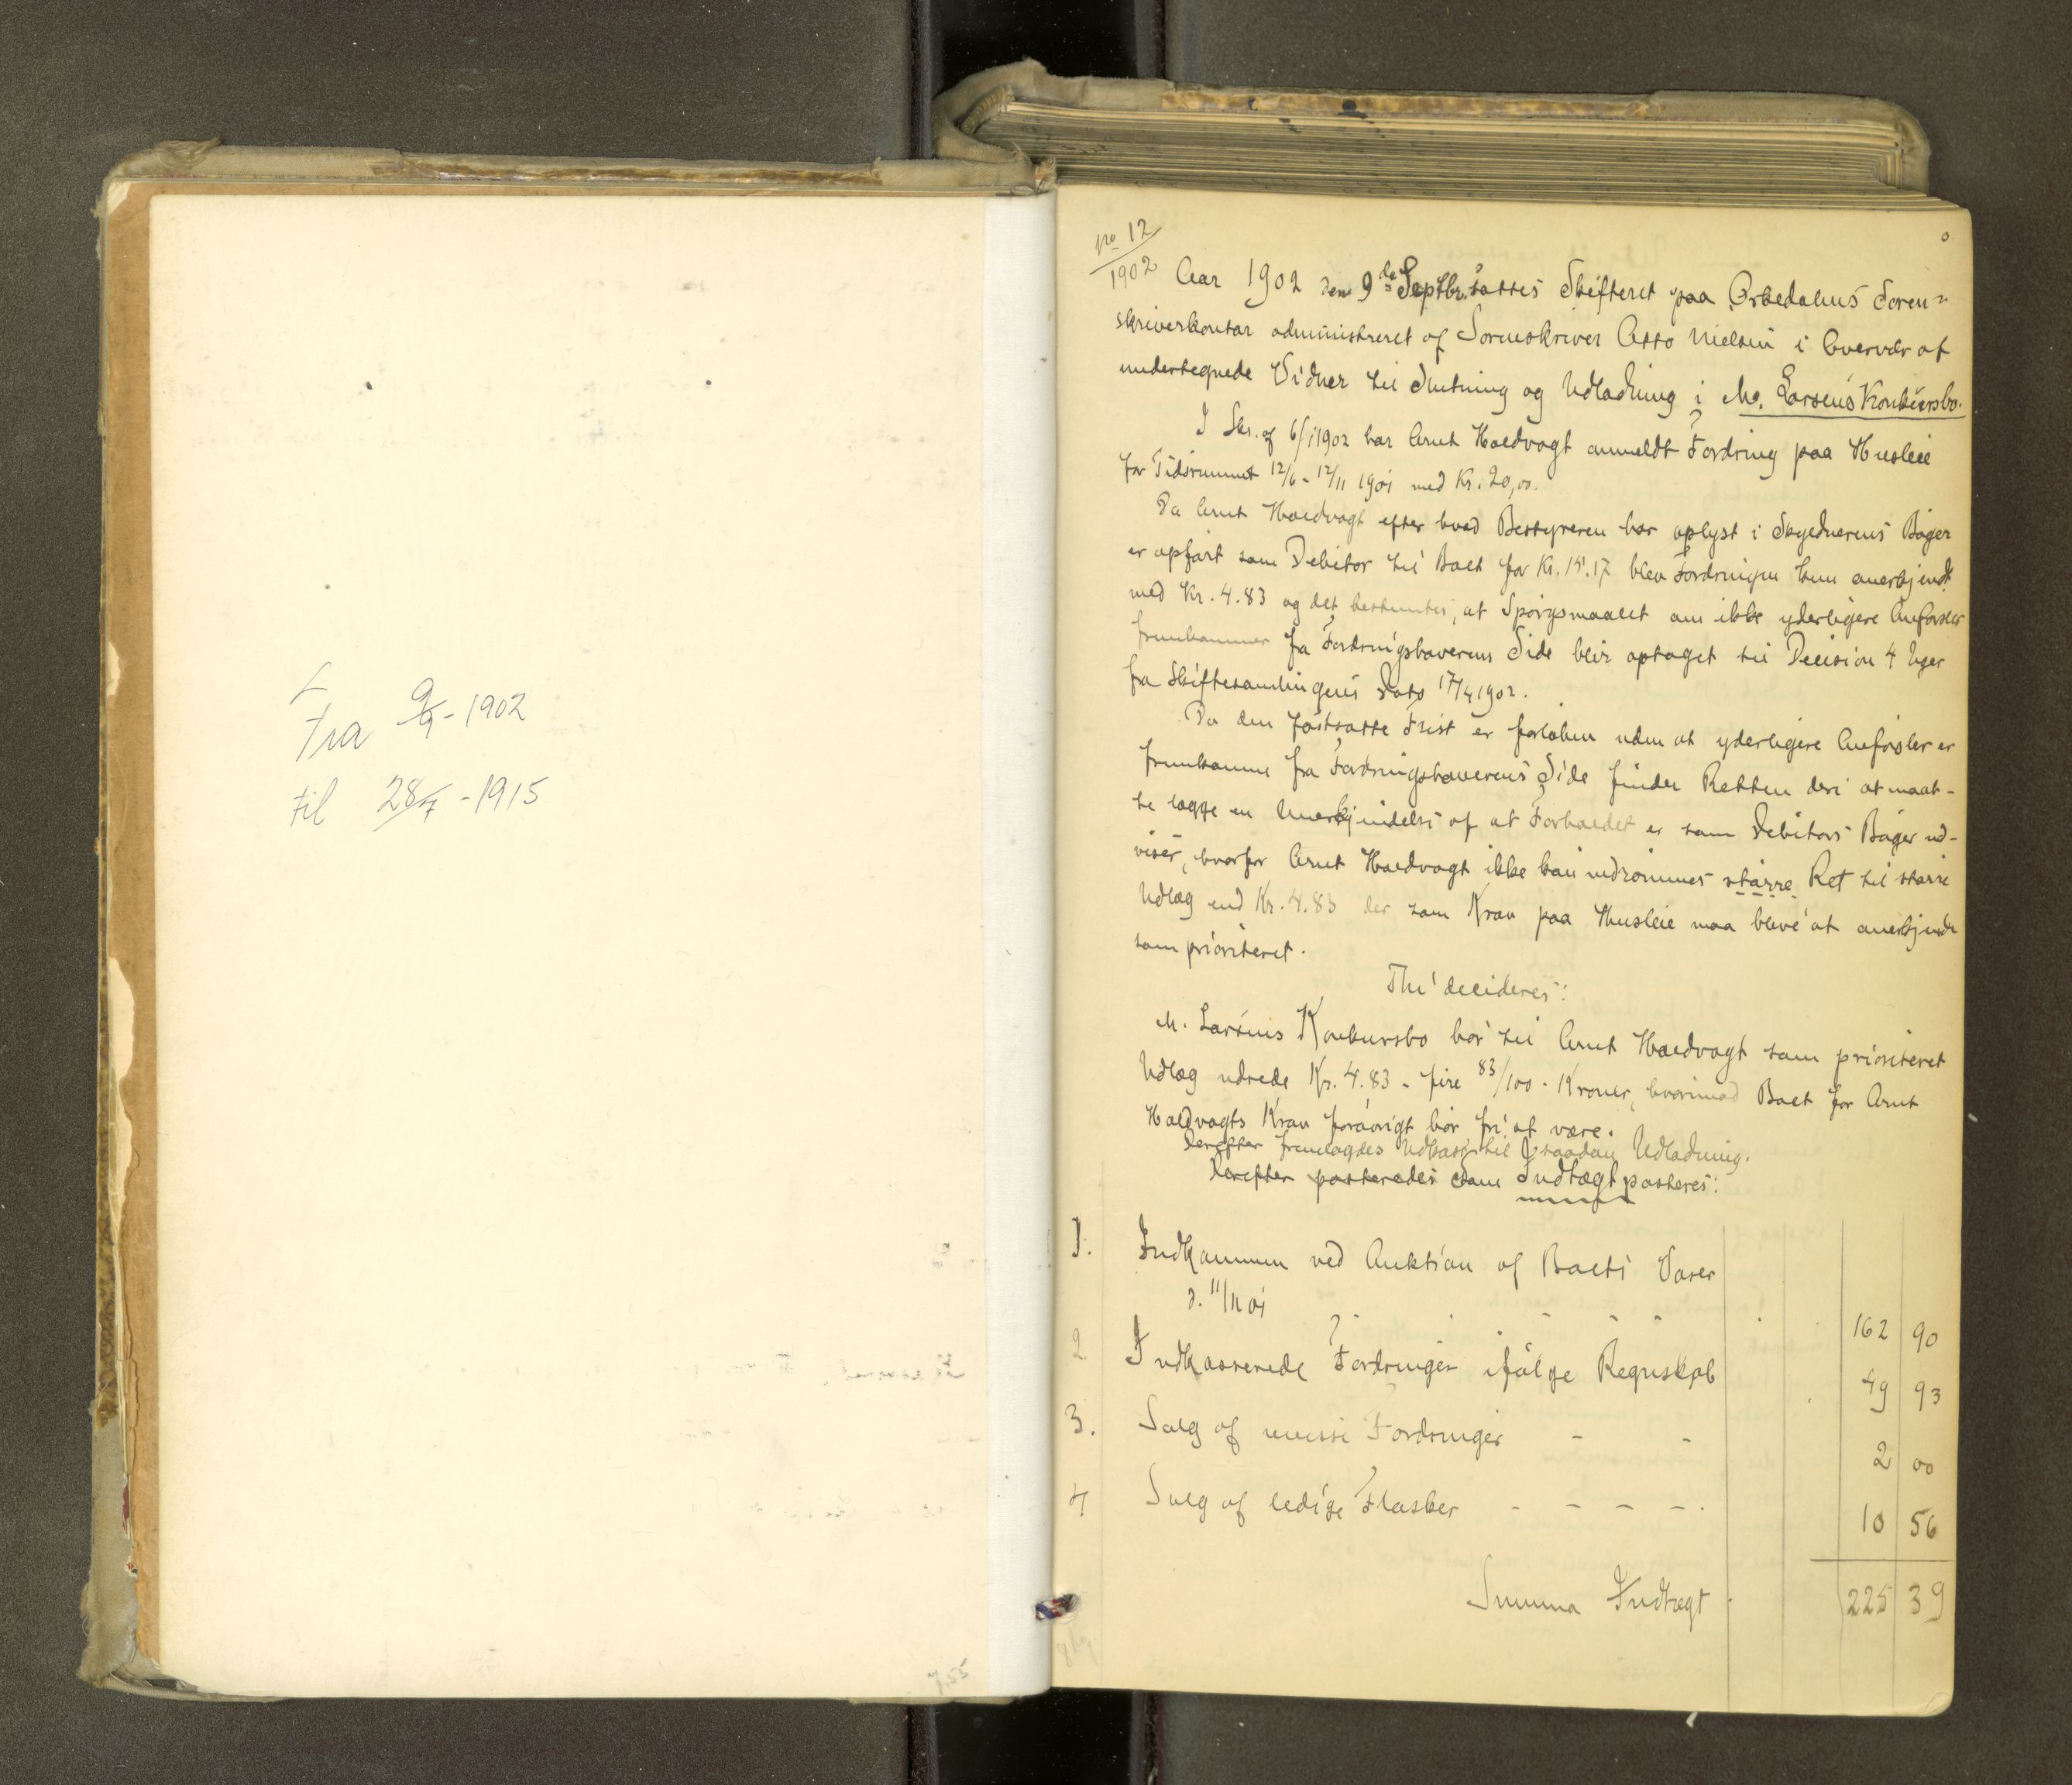 Fra 9/9 - 1902
til 28/7 - 1915
No 12
1902
Aar 1902 den 9de Septbr. sattes Skifteret paa Orkedalens Soren-
skriverkontor administreret af Sorenskriver Otto Nielsen i Overvær af
undertegnede Vidner til Slutning og Udlodning i M. Larsens Konkursbo.
I Skr. af 6/1 1902 har Arnt Holdvogt anmeldt Fordring paa Husleie
for Tidsrummet 12/6 - 12/11 1901 med Kr. 20,00.
Da Arnt Holdvogt efter hvad Bestyreren har oplyst i Skyldnerens Bøger
er opført som Debitor til Boet for Kr. 15.17 blev Fordringen kun anerkjendt
med Kr. 4.83 og det bestemtes, at Spørgsmaalet om ikke yderligere Anførsler
fremkommer fra Fordringshaverens Side blir optaget til Decision 4 Uger
fra Skiftesamlingens Dato 17/4 1902.
Da den fastsatte Frist er forløben uden at yderligere Anførsler er
fremkomne fra Fordringshaverens Side finder Retten deri at maat-
te lægge en Anerkjendelse af at Forholdet er som Debitors Bøger ud-
viser, hvorfor Arnt Holdvogt ikke kan indrømmes større Ret til større
Udlæg end Kr. 4.83 der som Krav paa Husleie maa blive at anerkjende
som prioriteret.
Thi decideres:
M. Larsens Konkursbo bør til Arnt Holdvogt som prioriteret
Udlæg udrede Kr. 4.83 - fire 83/100 - Kroner, hvorimod Boet for Arnt
Holdvogts Krav forøvrigt bør fri at være.
Derefter fremlagdes Udkast til saadan Udlodning.
Derefter posteredes som Indtægt posteres:
1. Indkommen ved Auktion af Boets Varer
d. 11/11 01 162 90
2 Indkasserede Fordringer ifølge Regnskab 49 93
3. Salg af uvisse Fordringer - - 2 00
4 Salg af ledige Flasker - - - - 10 56
Summa Indtægt 225 39